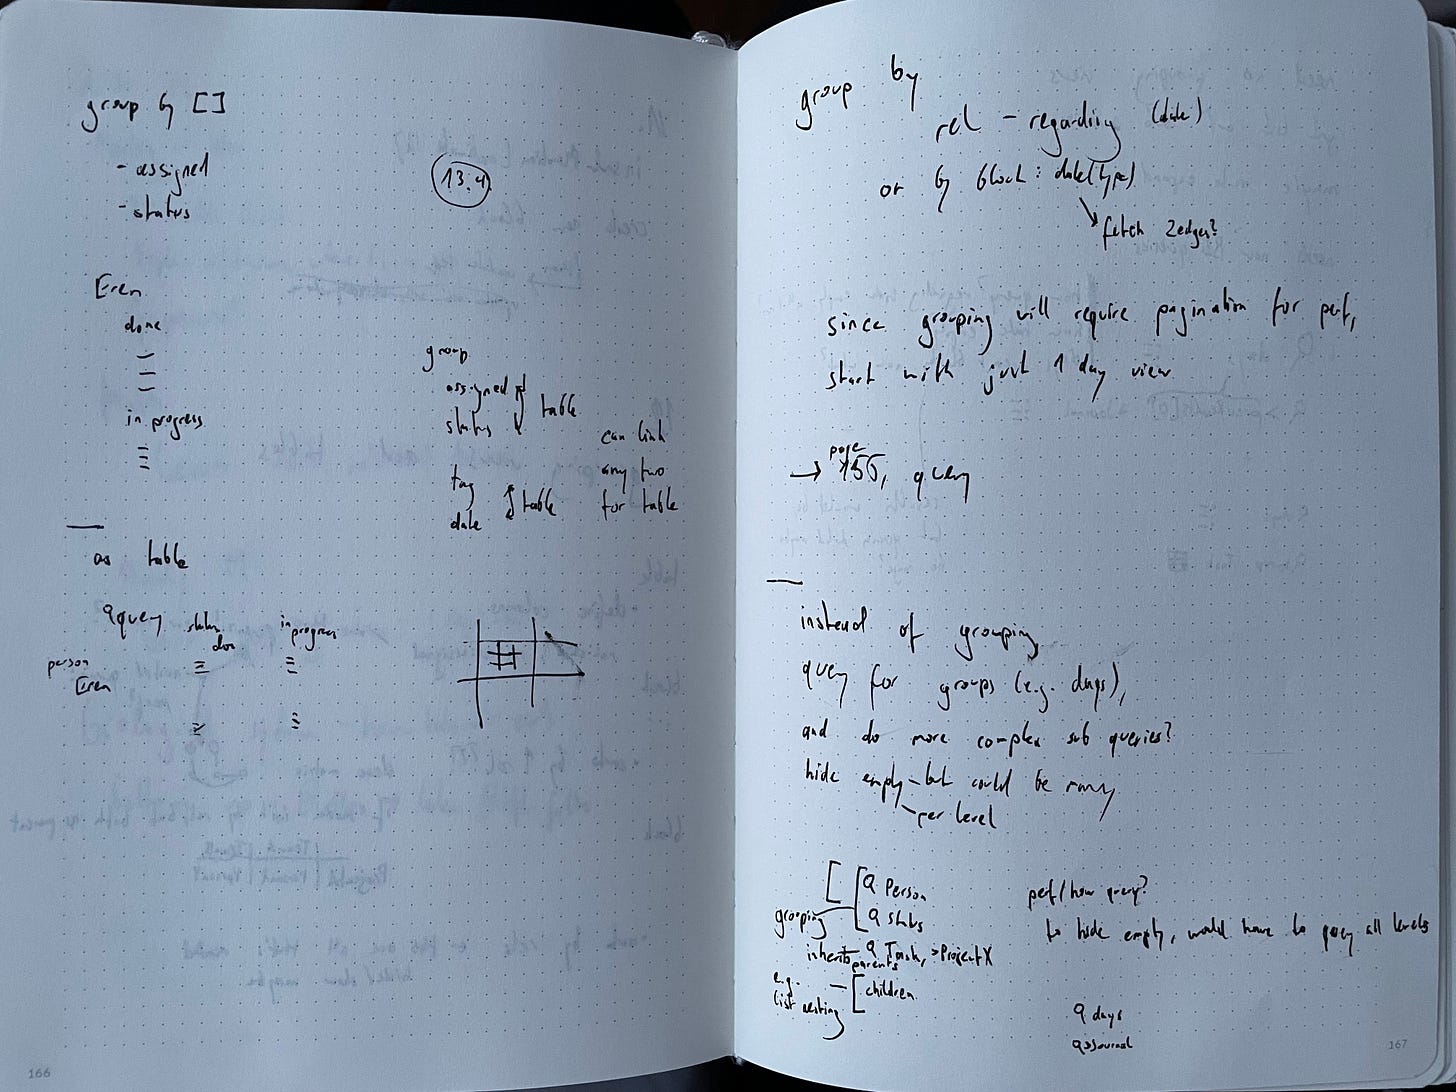 group by []
- assigned
- status
13.4
Eren
done
in progress
group
assigned
status
table
tag
date
table
can link
any two
for table
as table
Q query
status
done
in progress
person
Eren
166
group by
rel - regarding (date)
or by block: date(type)
fetch 2 edges?
since grouping will require pagination for perf,
start with just 1 day view
→ page 155, query
instead of grouping,
query for groups (e.g. days),
and do more complex sub queries?
hide empty - but could be many
per level
Q Person
grouping
Q status
inherits parents
Q Task, > Project X
e.g.
list nesting
children
perf/how query?
to hide empty, would have to query all levels
Q days
Q > Journal
167